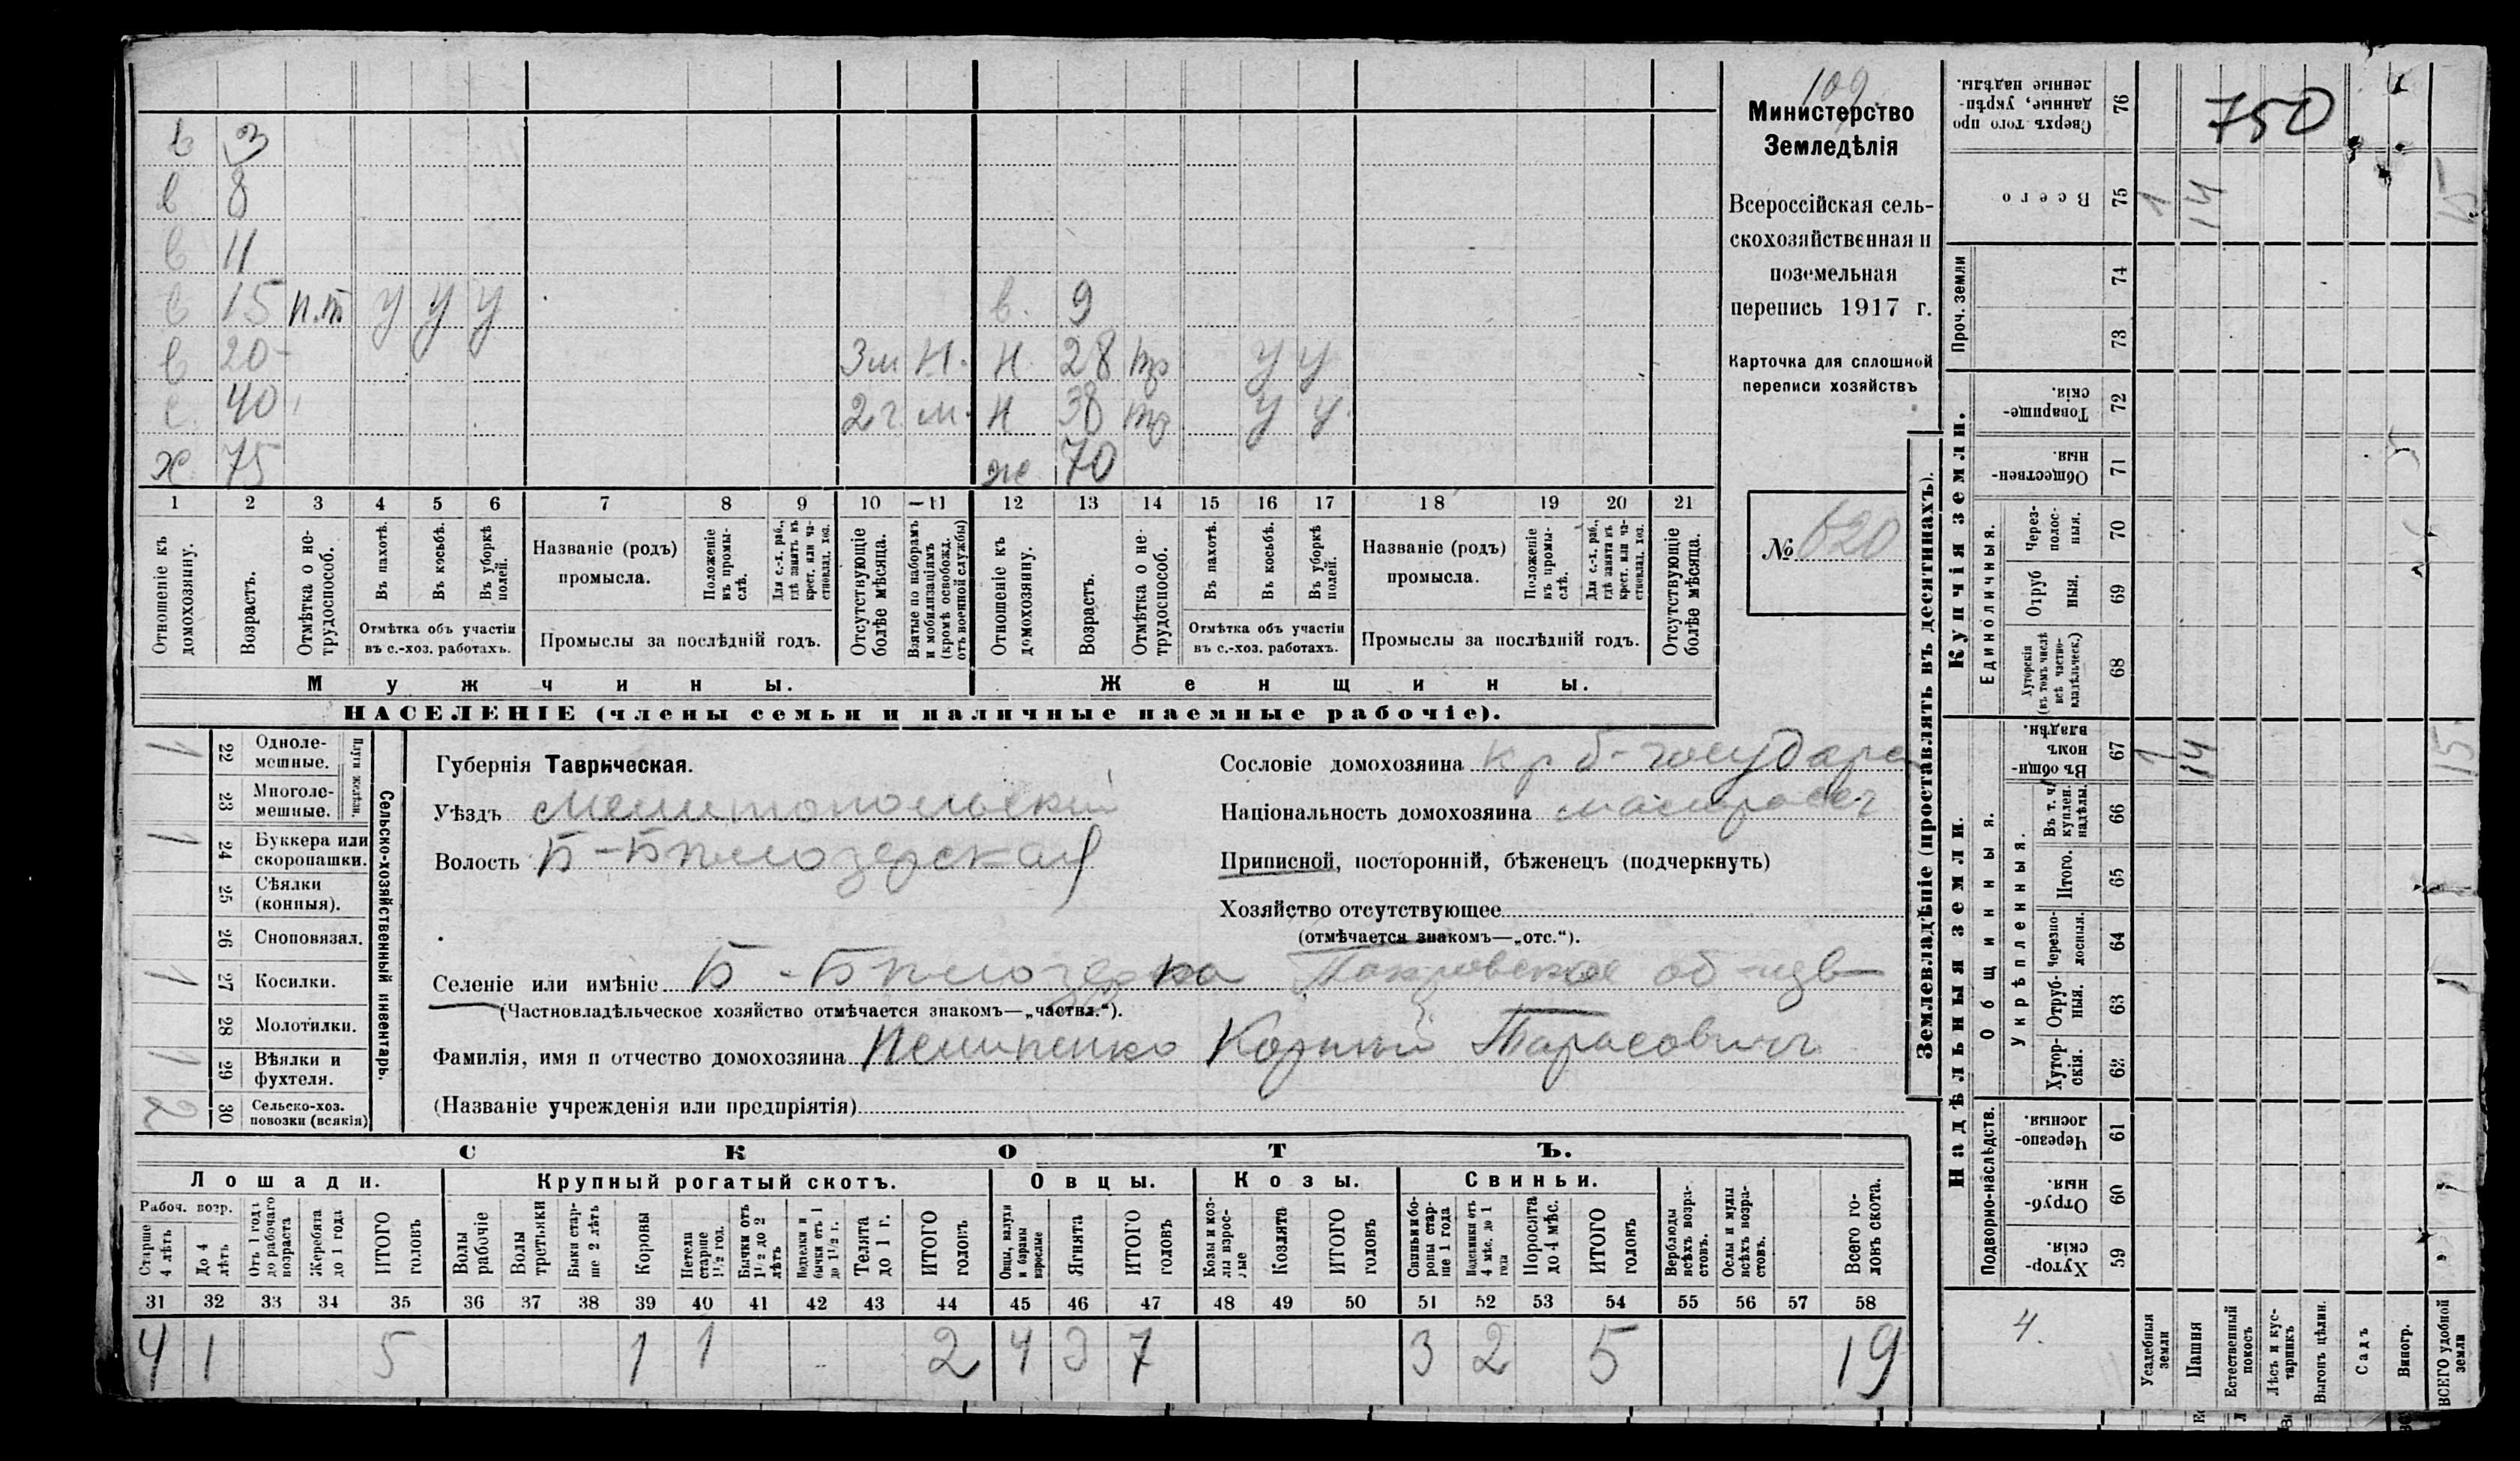 109
Министерство
Земледѣлія
Всероссійская сель-
скохозяйственная и
поземельная
перепись 1917 г.
Карточка для сплошной
переписи хозяйствъ
№ 620
в 3
в 8
в 11
в 15 п.т у у у в. 9
в 20 3м н. н 28 тр у у
с. 40 2г. м. н 38 тр у у
х 75 ж 70
1 2 3 4 5 6 7 8 9 10 11 12 13 14 15 16 17 18 19 20 21
Отношеніе къ домохозяину.
Возрастъ.
Отмѣтка о не-трудоспособ.
Въ пахотѣ.
Въ косьбѣ.
Въ уборкѣ полей.
Отмѣтка объ участіи
въ с.-хоз. работахъ.
Названіе (родъ)
промысла.
Положеніе въ промы-слѣ.
Для с.-х. раб., гдѣ занятъ въ крест. или ча-стновлад. хоз.
Промыслы за послѣдній годъ.
Отсутствующіе болѣе мѣсяца.
Взятые по наборамъ и мобилизаціямъ (кромѣ освобожд. отъ военной службы)
Отношеніе къ домохозяину.
Возрастъ.
Отмѣтка о не-трудоспособ.
Въ пахотѣ.
Въ косьбѣ.
Въ уборкѣ полей.
Отмѣтка объ участіи
въ с.-хоз. работахъ.
Названіе (родъ)
промысла.
Положеніе въ промы-слѣ.
Для с.-х. раб., гдѣ занята въ крест. или ча-стновлад. хоз.
Промыслы за послѣдній годъ.
Отсутствующіе болѣе мѣсяца.
Мужчины. Женщины.
НАСЕЛЕНІЕ (члены семьи и наличные наемные рабочіе).
Сельско-хозяйственный инвентарь.
Плуги желѣзн.
1 22 Одноле-мешные.
23 Многоле-мешные.
1 24 Буккера или скоропашки.
25 Сѣялки (конныя).
26 Сноповязал.
1 27 Косилки.
28 Молотилки.
1 29 Вѣялки и фухтеля.
2 30 Сельско-хоз. повозки (всякія)
Губернія Таврическая.
Уѣздъ Мелитопольскій
Волость Б-Бѣлозерская
Сословіе домохозяина кр б-государ
Національность домохозяина малоросс
Приписной, посторонній, бѣженецъ (подчеркнуть)
Хозяйство отсутствующее
(отмѣчается знакомъ—„отс.“).
Селеніе или имѣніе Б-Бѣлозерка Покровское об-цв
(Частновладѣльческое хозяйство отмѣчается знакомъ—„частвл.“).
Фамилія, имя и отчество домохозяина Пилипенко Корній Тарасовичъ
(Названіе учрежденія или предпріятія)
СКОТЪ.
Лошади. Крупный рогатый скотъ. Овцы. Козы. Свиньи.
Рабоч. возр.
Старше 4 лѣтъ
До 4 лѣтъ
Отъ 1 года до рабочаго возраста
Жеребята до 1 года
ИТОГО головъ
Волы рабочіе
Волы третьяки
Быки стар-ше 2 лѣтъ
Коровы
Нетели старше 1½ год.
Бычки отъ 1½ до 2 лѣтъ
Подтелки и бычки отъ 1 до 1½ г.
Телята до 1 г.
ИТОГО головъ
Овцы, валухи и бараны взрослые
Ягнята
ИТОГО головъ
Козы и коз-лы взрос-лые
Козлята
ИТОГО головъ
Свиньи и бо-ровы стар-ше 1 года
Подсвинки отъ 4 мѣс. до 1 года
Поросята до 4 мѣс.
ИТОГО головъ
Верблюды всѣхъ возра-стовъ.
Ослы и мулы всѣхъ возра-стовъ.
Всего го-ловъ скота.
31 32 33 34 35 36 37 38 39 40 41 42 43 44 45 46 47 48 49 50 51 52 53 54 55 56 57 58
4 1 5 1 1 2 4 3 7 3 2 5 19
Землевладѣніе (проставлять въ десятинахъ).
Надѣльныя земли. Купчія земли.
Подворно-наслѣдств.
Общинныя.
Укрѣпленныя.
Единоличныя.
Проч. земли
59 Хутор-скія.
60 Отруб-ныя.
61 Черезпо-лосныя.
62 Хутор-скія.
63 Отруб-ныя.
64 Черезпо-лосныя.
65 Итого.
66 Въ т. ч. куплен. надѣлы.
67 Въ общи-номъ владѣн. 1 14 15
68 Хуторскія (въ томъ числѣ всѣ частно-владѣльческ.)
69 Отруб ныя.
70 Через-полос-ныя.
71 Обществен-ныя.
72 Товарище-скія.
73
74
75 Всего 1 14 15
76 Сверхъ того про данные, укрѣп-ленные надѣлы.
750
4.
Усадебныя земли
Пашня
Естественный покосъ
Лѣсъ и кус-тарникъ
Выгонъ цѣлин.
Садъ
Виногр.
ВСЕГО удобной земли